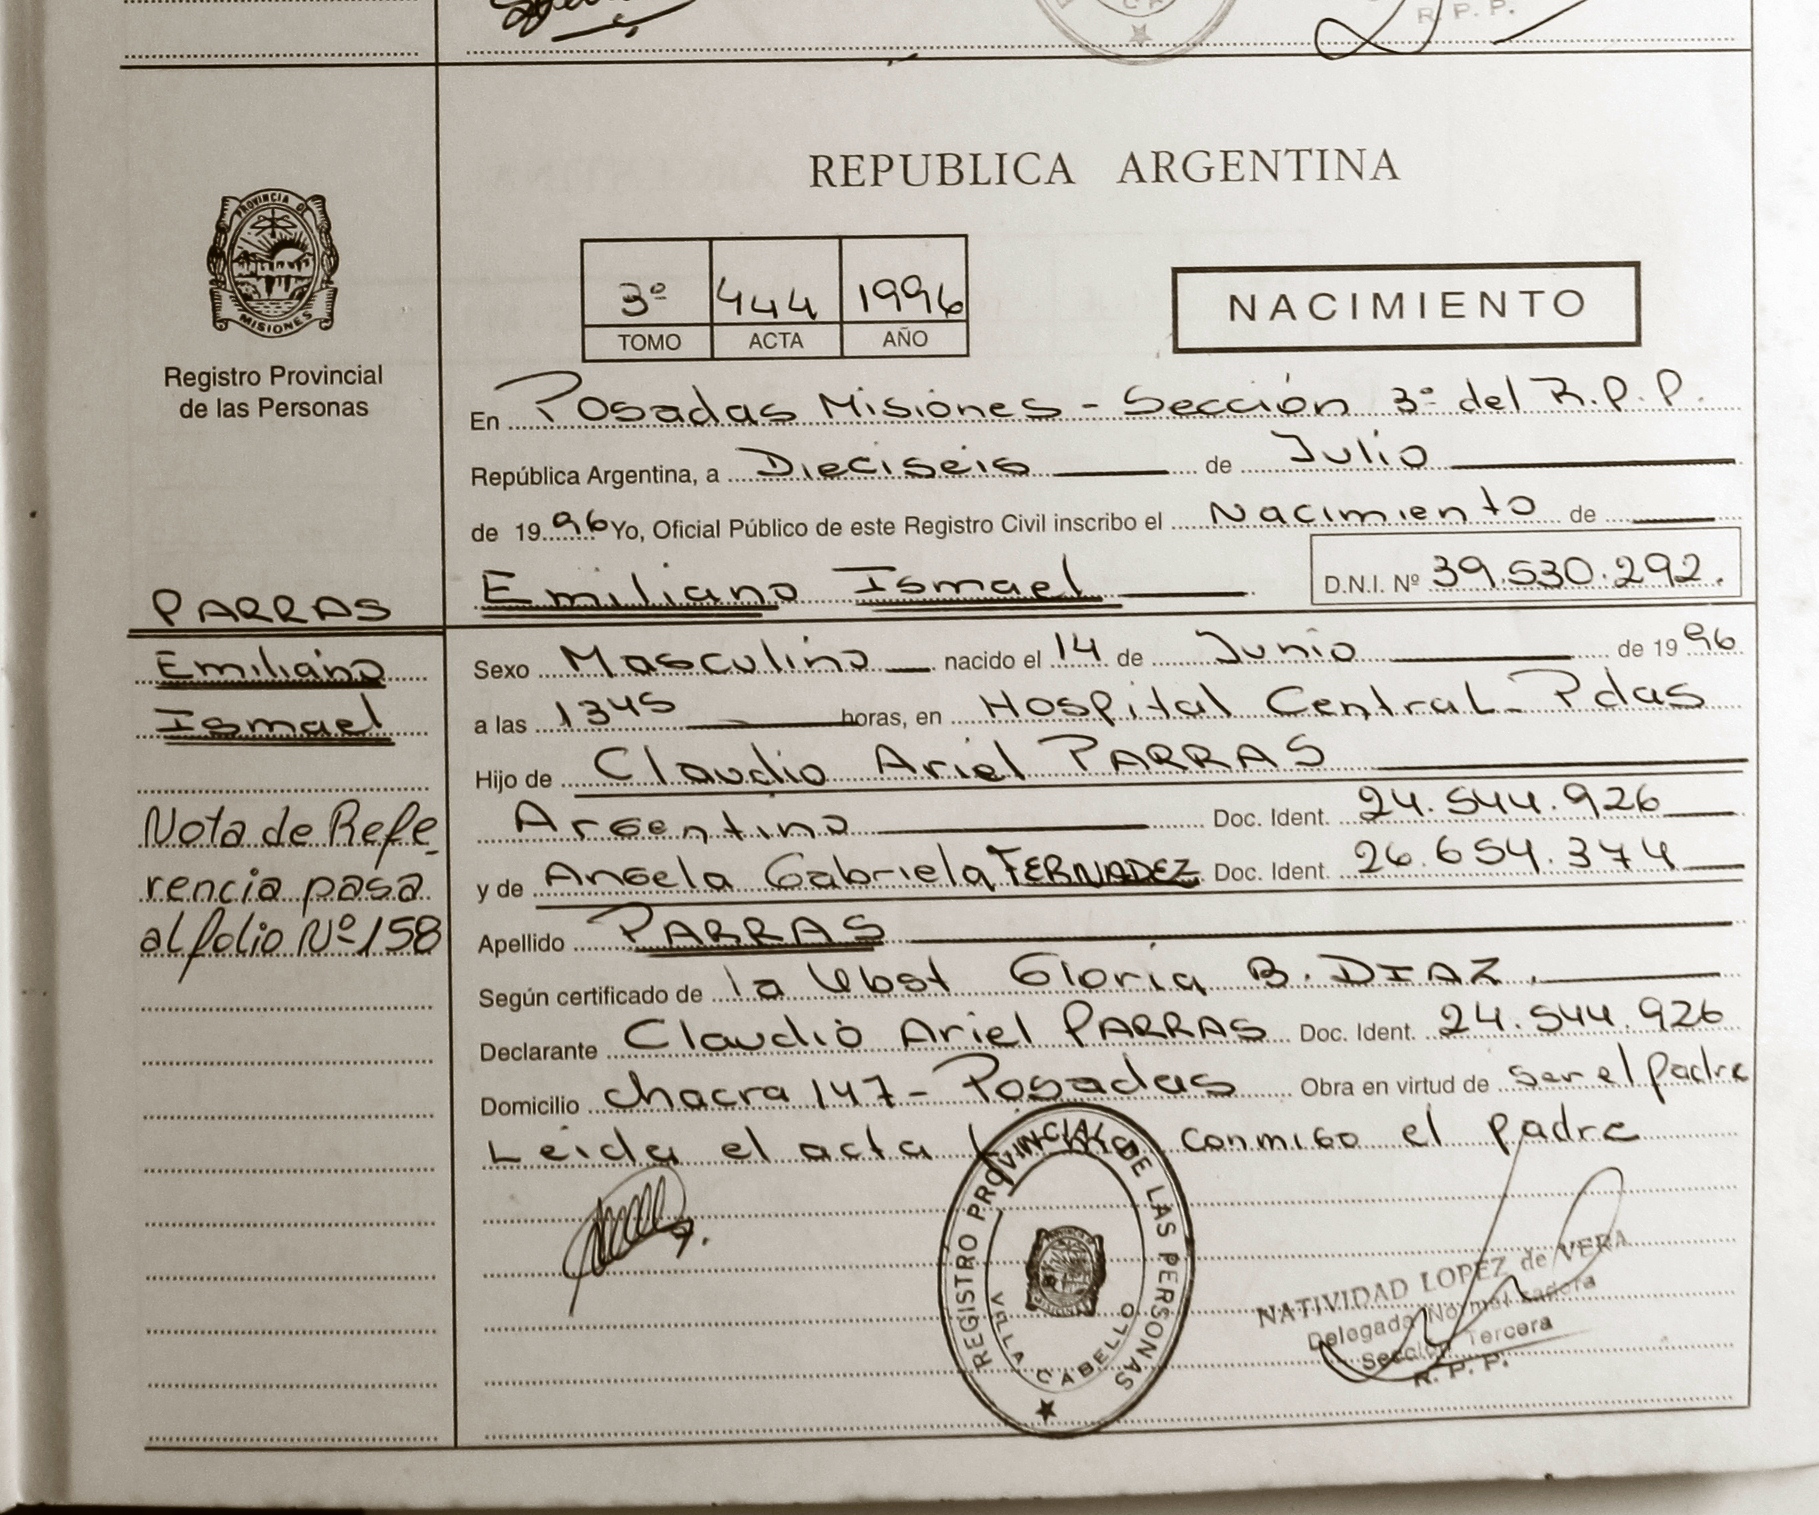 R. P. P.
REPUBLICA ARGENTINA
PROVINCIA D
MISIONES
Registro Provincial
de las Personas
3º 444 1996
TOMO ACTA AÑO
NACIMIENTO
En Posadas Misiones - Sección 3º del R.P.P.
República Argentina, a Dieciseis de Julio
de 1996 Yo, Oficial Público de este Registro Civil inscribo el Nacimiento de
Emiliano Ismael D.N.I. Nº 39.530.292.
PARRAS
Emiliano
Ismael
Nota de Refe-
rencia pasa
al folio Nº 158
Sexo Masculino nacido el 14 de Junio de 1996
a las 1345 horas, en Hospital Central - Pdas
Hijo de Claudio Ariel PARRAS
Argentino Doc. Ident. 24.544.926
y de Angela Gabriela FERNADEZ Doc. Ident. 26.654.374
Apellido PARRAS
Según certificado de la Obst Gloria B. DIAZ.
Declarante Claudio Ariel PARRAS Doc. Ident. 24.544.926
Domicilio chacra 147 - Posadas Obra en virtud de ser el padre
Leida el acta conmigo el padre
REGISTRO PROVINCIAL DE LAS PERSONAS
VILLA CABELLO
NATIVIDAD LOPEZ de VERA
Delegada Normalizadora
Sección Tercera
R. P. P.